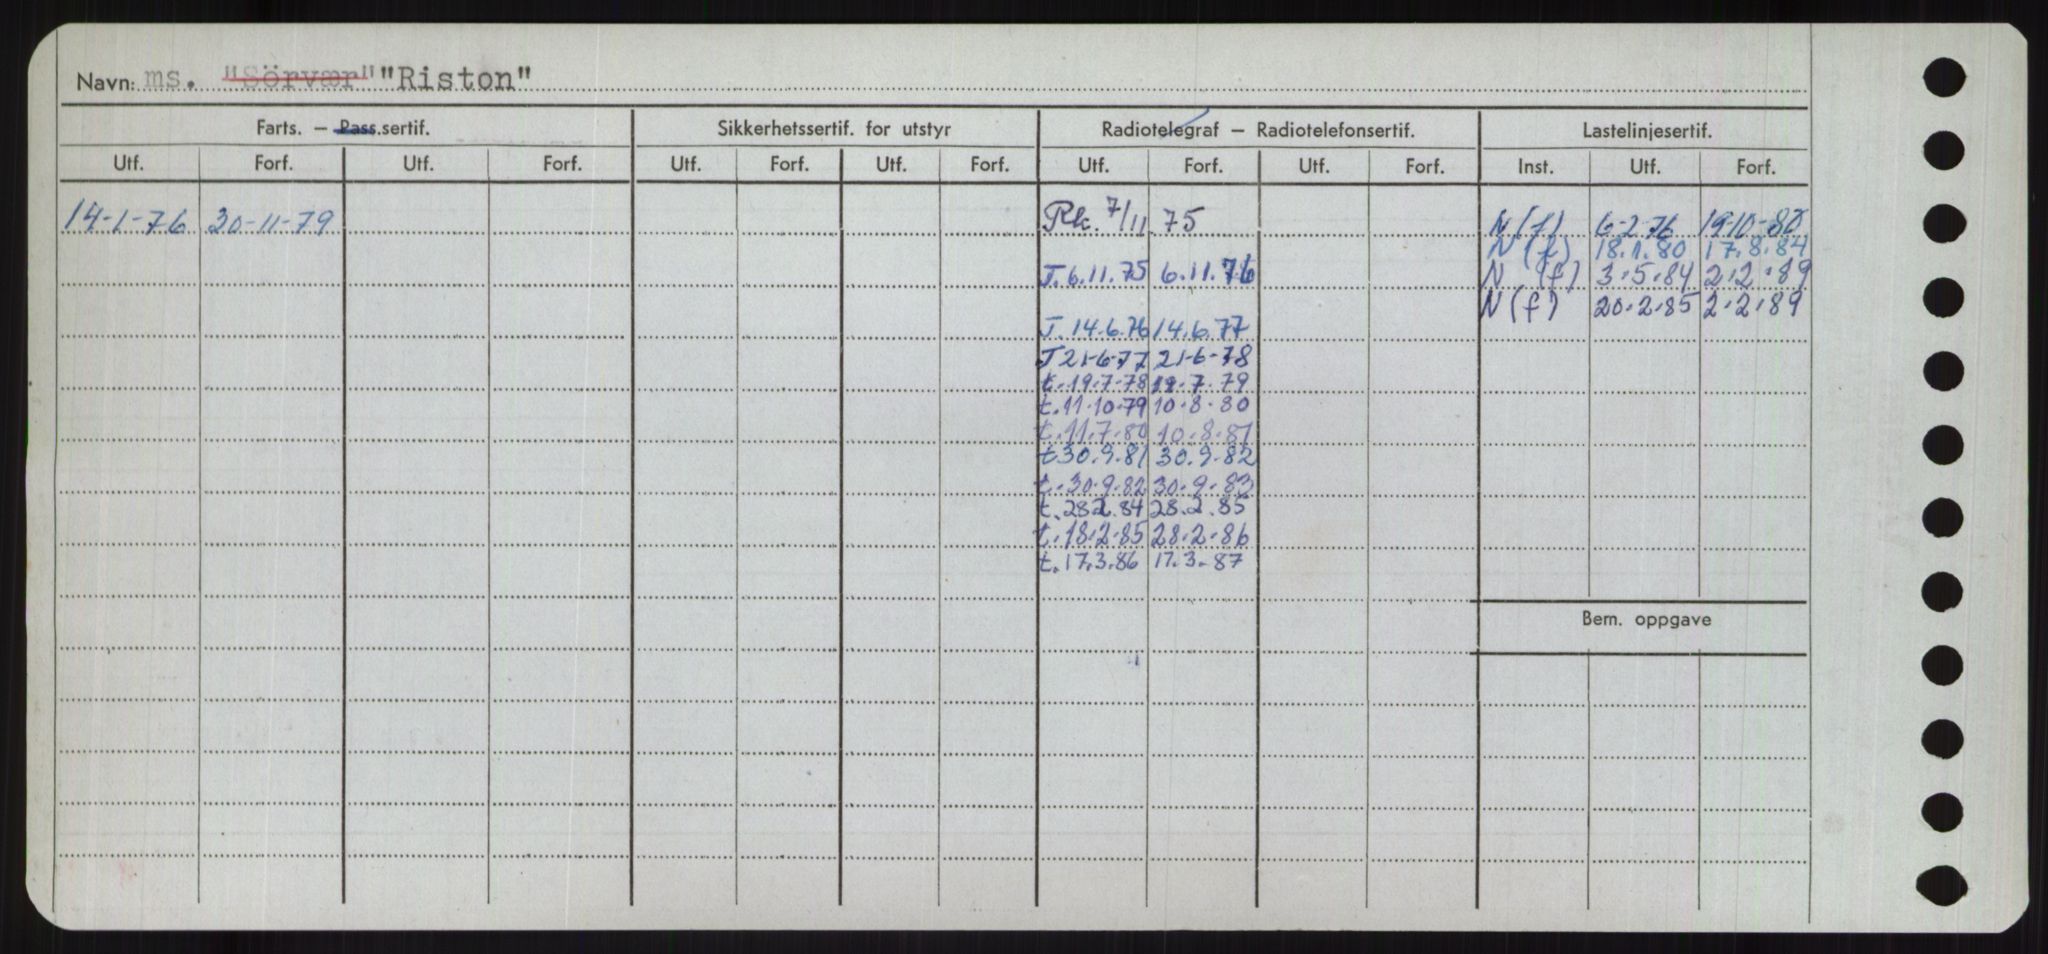 Navn: ms. "Sörvær" "Riston"
Farts. — Pass.sertif. Sikkerhetssertif. for utstyr Radiotelegraf — Radiotelefonsertif. Lastelinjesertif.
Utf. Forf. Utf. Forf. Utf. Forf. Utf. Forf. Utf. Forf. Utf. Forf. Inst. Utf. Forf.
14-1-76 30-11-79 Rk. 7/11.75 N(f) 6-2-76 19-10-80
N(f) 18.1.80 17.8.84
T. 6.11.75 6.11.76 N (f) 3.5.84 2.2.89
N(f) 20.2.85 2.2.89
T. 14.6.76 14.6.77
T 21-6-77 21-6-78
t. 19.7-78 19.7.79
t. 11.10.79 10.8.80
t. 11.7.80 10.8.81
t 30.9.81 30.9.82
t. 30.9.82 30.9.83
t. 28.2.84 28.2.85
t. 18.2.85 28.2.86
t. 17.3.86 17.3.87
Bem. oppgave